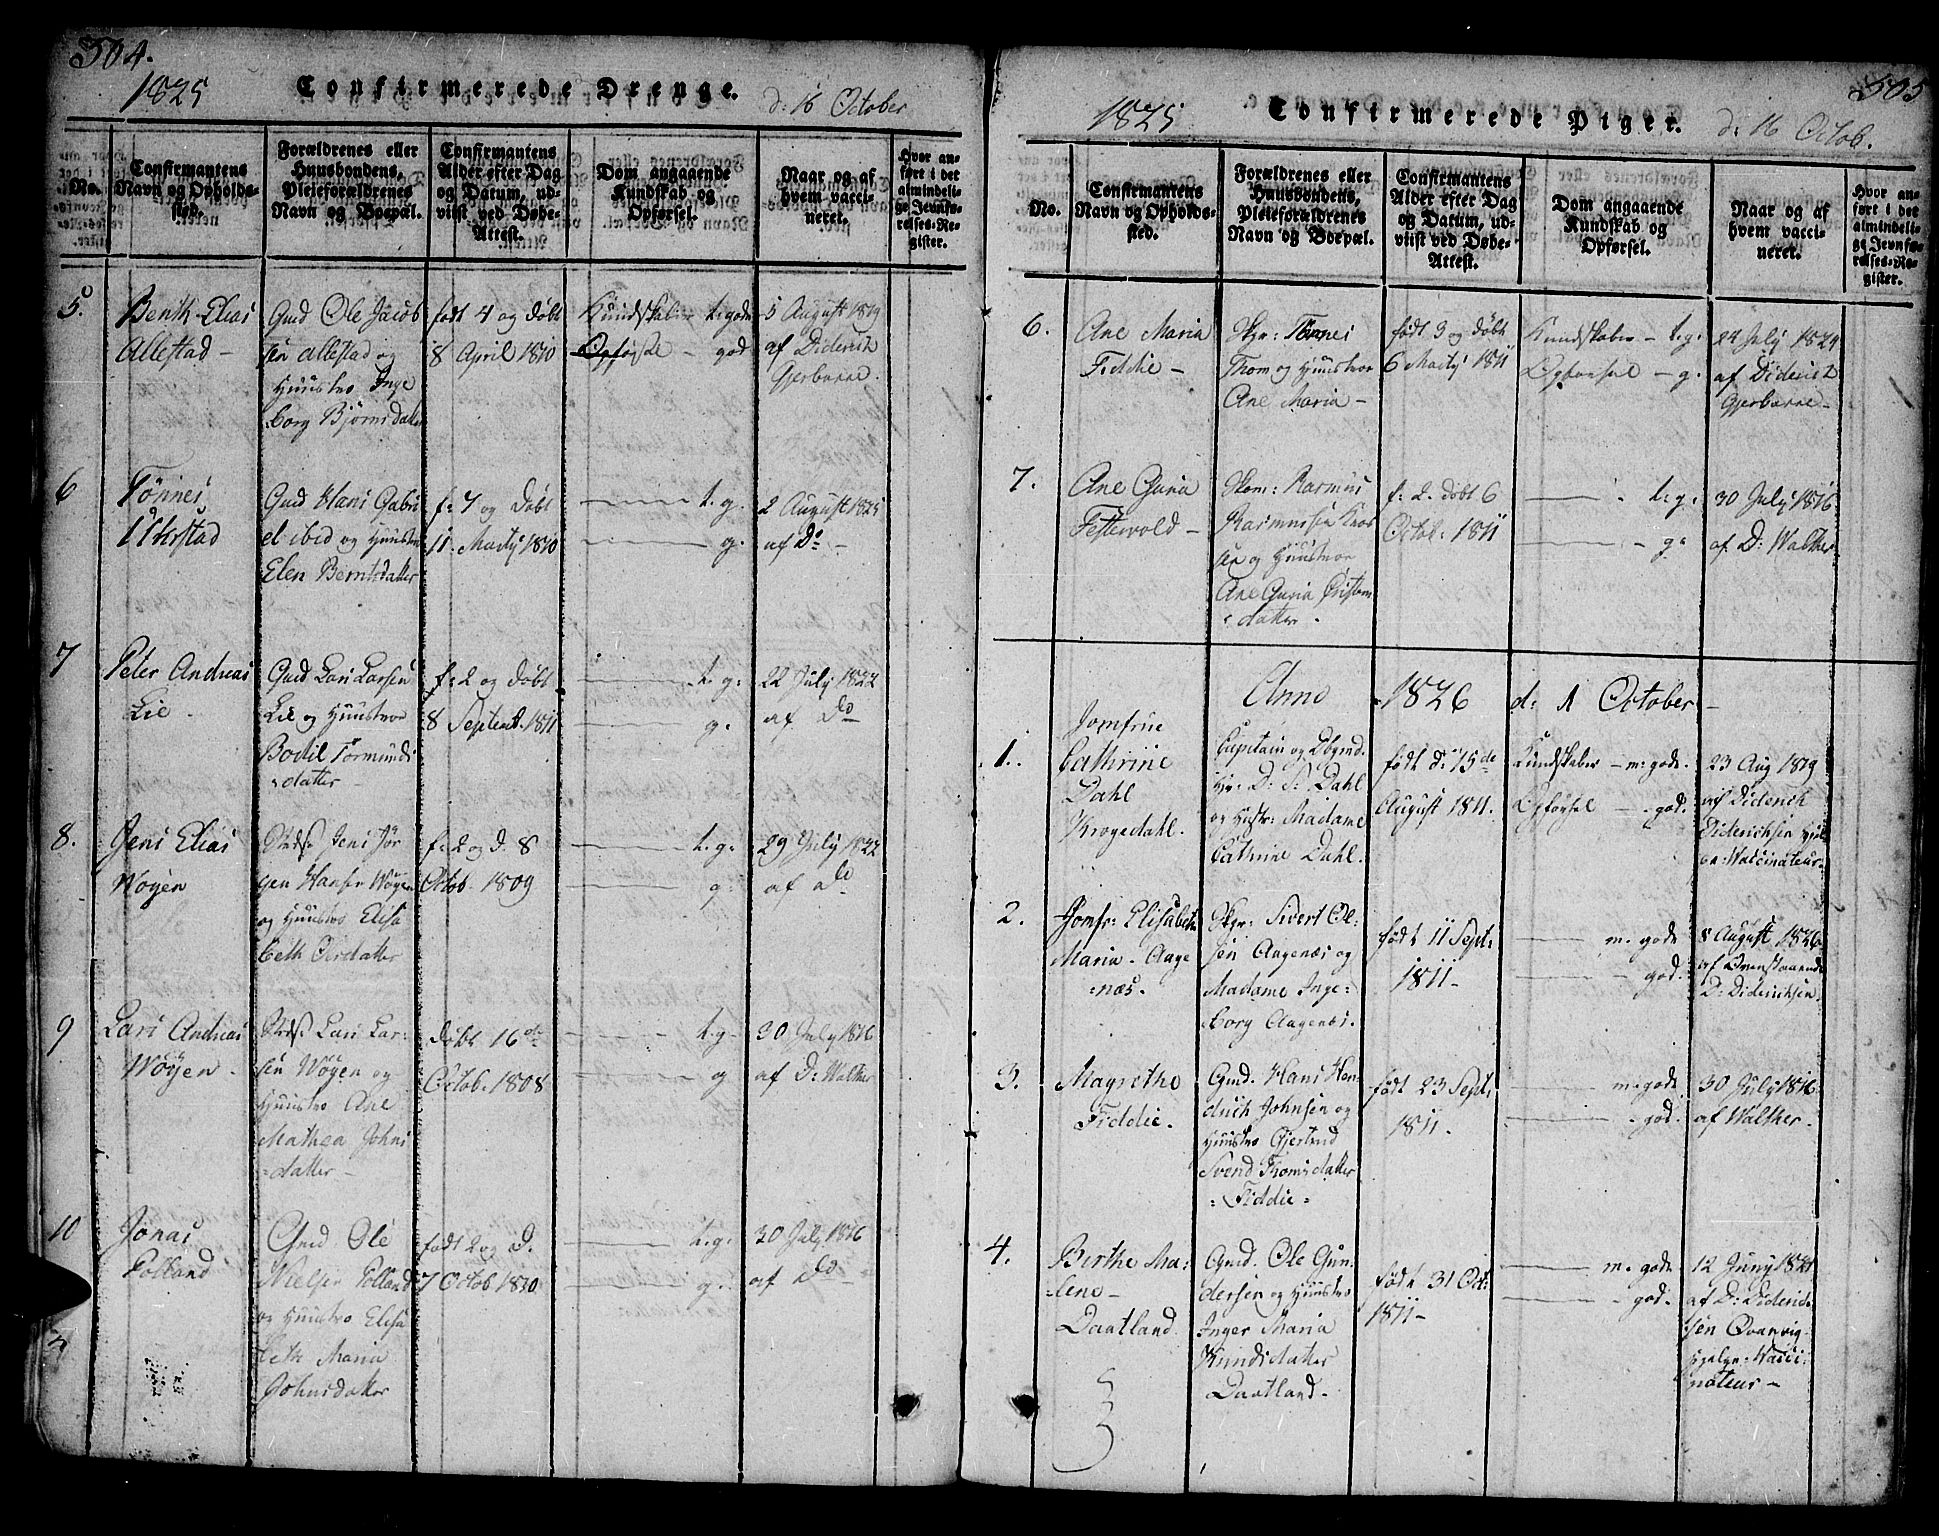 504.
1825 Confirmerede Drenge. d: 16 October
No.
Confirmantens Navn og Opholds-sted.
Forældrenes eller Huusbondens, Pleieforældrenes Navn og Boepæl.
Confirmantens Alder efter Dag og Datum, ud-viist ved Døbe-Attest.
Dom angaaende Kundskab og Opførsel.
Naar og af hvem vacci-neret.
Hvor an-ført i det almindeli-ge Jevnfø-relses-Re-gister.
5.
Benth Elias
Allestad –
Gmd Ole Jacob
sen Allestad og
Huustro Inge
borg Bjørnsdatter
født 4 og døbt
8 April 1810
Kundskaber t: gode
Opførsel – god
5 August 1819
af Diderich
Gjerbarne.
6
Tønnes
Gmd Hans Gabri
el ibid og Huustro
Elen Berntsdatter
f: 7 og Døbt
11. Martij 1810
t. g.
g.
2 August 1825
af Do –
7
Peter Andreas
Lie.
Gmd Lars Larsen
Lie og Huustroe
Bodil Tormunds
datter –
f: 2 og døbt
8 Septenb. 1811
t. g:
g.
22 July 1822
af Do
8.
Jens Elias
Wøyen
Jens Jør
gen Hansen Wøyen
og Huustro Elisa
beth Persdatter
f: 2 og d. 8
Octob. 1809
t. g.
g.
29 July 1822
af Do
9
Lars Andreas
Wøyen.
Lars Lar-
sen Wøyen og
Huustro Ane
Mathea Johns
datter –
døbt 16de
Octob. 1808
t. g.
g
30 July 1816
af D: Walther
10
Jonas
Polland
Gmd Ole
Nielsen Polland
og Huustro Elisa
beth Maria
Johnsdatter
født 2 og d.
7 Octob 1810
t. g.
g.
30 July 1816
af Do
505
1825 Confirmerede Piger. d: 16 Octob.
No.
Confirmantens Navn og Opholds-sted.
Forældrenes eller Huusbondens, Pleieforældrenes Navn og Boepæl.
Confirmantens Alder efter Dag og Datum, ud-viist ved Døbe-Attest.
Dom angaaende Kundskab og Opførsel.
Naar og af hvem vacci-neret.
Hvor an-ført i det almindeli-ge Jevnfø-relses-Re-gister.
6.
Ane Maria
Fiddie –
Skpr: Tønnes
Thom og Huustroe
Ane Maria –
født 3 og døbt
6 Martij 1811
Kundskaber – t. g.
Opførsel – g.
24 July 1824
af Diderich
Gjerbarne –
7.
Ane Guria
Festervold –
Skom: Rasmus
Rasmussen
sen og Huustroe
Ane Guria
datter.
f: 2. døbt 6
Octob. 1811
t: g.
g.
30 July 1816.
af D: Walther
Anno 1826 d: 1 October –
1.
Jomfrue
Cathrine
Dahl
Krogedahl.
Capitain og
Hr: D. S. Dahl
og Hustr: Madame
Cathrine Dahl.
født d: 15de
August 1811.
Kundskaber – m: gode.
Opførsel – god.
23 Aug 1819
af Diderich
Diderichsen
Waccinateur
2.
Jomfr: Elisabeth
Maria Aage
næs.
Skpr: Sivert Ol-
sen Aagenæs og
Madame Inge-
borg Aagenæs.
født 11 Sept:
1811 –
m. gode
god.
8 August 1826
af Ovenstaaende
D: Diderichsen
3.
Magrethe
Fiddie.
Gmd. Hans Hen-
drich Johnsen og
Huustro Gjertrud
Svend Thomsdatter
Fiddie
født 23 Sept:
1811.
m. gode
god.
30 July 1816
af Walther.
4.
Birthe Ma-
lene –
Daatland
Gmd. Ole Gun-
dersen og Huustro
Inger Maria
Knudsdatter
Daatland.
født 31 Oct:
1811 –
m. gode
god.
12 Juny 1821
af D: Diderich
sen Qvanvig
hjelpe: Wacci-
nateur –